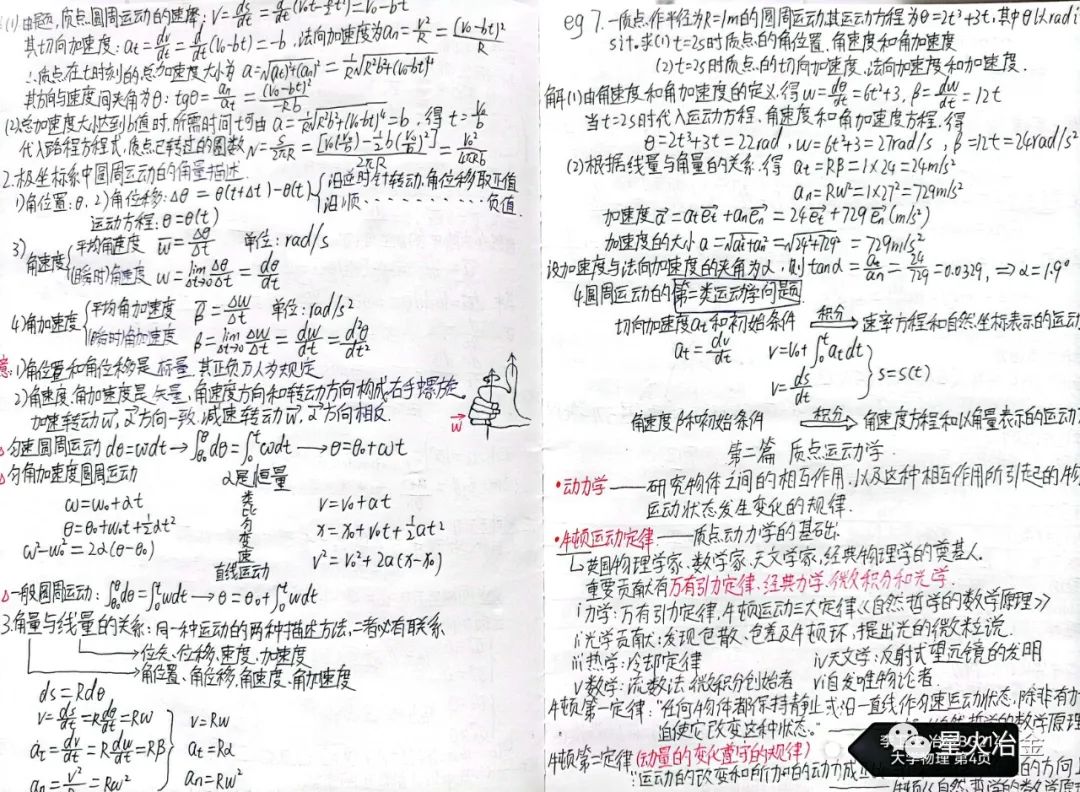 (1)由题,质点圆周运动的速率: v=ds/dt=d/dt(v₀t-½bt²)=v₀-bt
其切向加速度: at=dv/dt=d/dt(v₀-bt)=-b,法向加速度为an=v²/R=(v₀-bt)²/R
∴质点在t时刻的总加速度大小为 a=√(at)²+(an)²=1/R√R²b²+(v₀-bt)⁴
其方向与速度间夹角为θ: tgθ=an/at=(v₀-bt)²/-Rb
(2)总加速度大小达到b值时,所需时间t可由 a=1/R√R²b²+(v₀-bt)⁴=b,得t=v₀/b
代入路程方程式,质点已转过的圈数 N=s/2πR=[v₀(v₀/b)-½b(v₀/b)²]/2πR=v₀²/4πRb
2.极坐标系中圆周运动的角量描述.
1)角位置: θ. 2)角位移: Δθ=θ(t+Δt)-θ(t) {沿逆时针转动,角位移取正值
沿顺··········负值.
运动方程: θ=θ(t)
3)角速度{平均角速度 w̄=Δθ/Δt 单位: rad/s
(瞬时)角速度 w=lim Δt→0 Δθ/Δt=dθ/dt
4)角加速度{平均角加速度 β̄=Δw/Δt 单位: rad/s²
(瞬时)角加速度 β=lim Δt→0 Δw/Δt=dw/dt=d²θ/dt²
意:1)角位置和角位移是标量,其正负乃人为规定
2)角速度.角加速度是矢量,角速度方向和转动方向构成右手螺旋
加速转动w⃗,α⃗方向一致.减速转动w⃗,α⃗方向相反.
w⃗
△匀速圆周运动 dθ=wdt→∫θ₀^θ dθ=∫₀^t wdt→θ=θ₀+wt
△匀角加速度圆周运动 α是恒量
类比匀变速直线运动
ω=ω₀+αt v=v₀+at
θ=θ₀+ω₀t+½αt² x=x₀+v₀t+½at²
ω²-ω₀²=2α(θ-θ₀) v²=v₀²+2a(x-x₀)
△一般圆周运动: ∫θ₀^θ dθ=∫₀^t wdt→θ=θ₀+∫₀^t wdt
3.角量与线量的关系:同一种运动的两种描述方法,二者必有联系
→位矢、位移、速度、加速度
→角位置、角位移、角速度、角加速度
ds=Rdθ
v=ds/dt=Rdθ/dt=Rw v=Rw
at=dv/dt=Rdw/dt=Rβ at=Rα
an=v²/R=Rw² an=Rw²
eg 7.一质点作半径为R=1m的圆周运动,其运动方程为θ=2t³+3t,其中θ以rad
s计.求(1)t=2s时质点的角位置、角速度和角加速度
(2)t=2s时质点的切向加速度、法向加速度和加速度.
解(1)由角速度和角加速度的定义,得 w=dθ/dt=6t²+3, β=dw/dt=12t
当t=2s时代入运动方程、角速度和角加速度方程.得
θ=2t³+3t=22rad, w=6t²+3=27rad/s, β=12t=24rad/s²
(2)根据线量与角量的关系.得 at=Rβ=1×24=24m/s²
an=Rw²=1×27²=729m/s²
加速度a⃗=at e⃗t+an e⃗n=24e⃗t+729e⃗n(m/s²)
加速度的大小 a=√at²+an²=√24²+729²=729m/s²
设加速度与法向加速度的夹角为α,则tanα=at/an=24/729=0.0329,⇒α=1.9°
4.圆周运动的第二类运动学问题
切向加速度at和初始条件 积分→ 速率方程和自然坐标表示的运动
at=dv/dt v=v₀+∫₀^t at dt
v=ds/dt } s=s(t)
角速度β和初始条件 积分→ 角速度方程和以角量表示的运动
第二篇 质点运动学.
•动力学——研究物体之间的相互作用.以及这种相互作用所引起的物
运动状态发生变化的规律.
•牛顿运动定律.——质点动力学的基础.
↳英国物理学家、数学家、天文学家,经典物理学的奠基人.
重要贡献有万有引力定律、经典力学、微积分和光学.
i力学:万有引力定律、牛顿运动三大定律《自然哲学的数学原理》
ii光学贡献:发现色散、色差及牛顿环,提出光的微粒说.
iii热学:冷却定律 iv天文学:反射式望远镜的发明
v数学:流数法、微积分创始者 vi自发唯物论者.
牛顿第一定律:"任何物体都保持静止或沿一直线作匀速运动状态,除非有力
迫使它改变这种状态."
牛顿第二定律(动量的变化遵守的规律)
"运动的改变和所加的动力成正
的方向上
星火冶金
大学物理 第4页